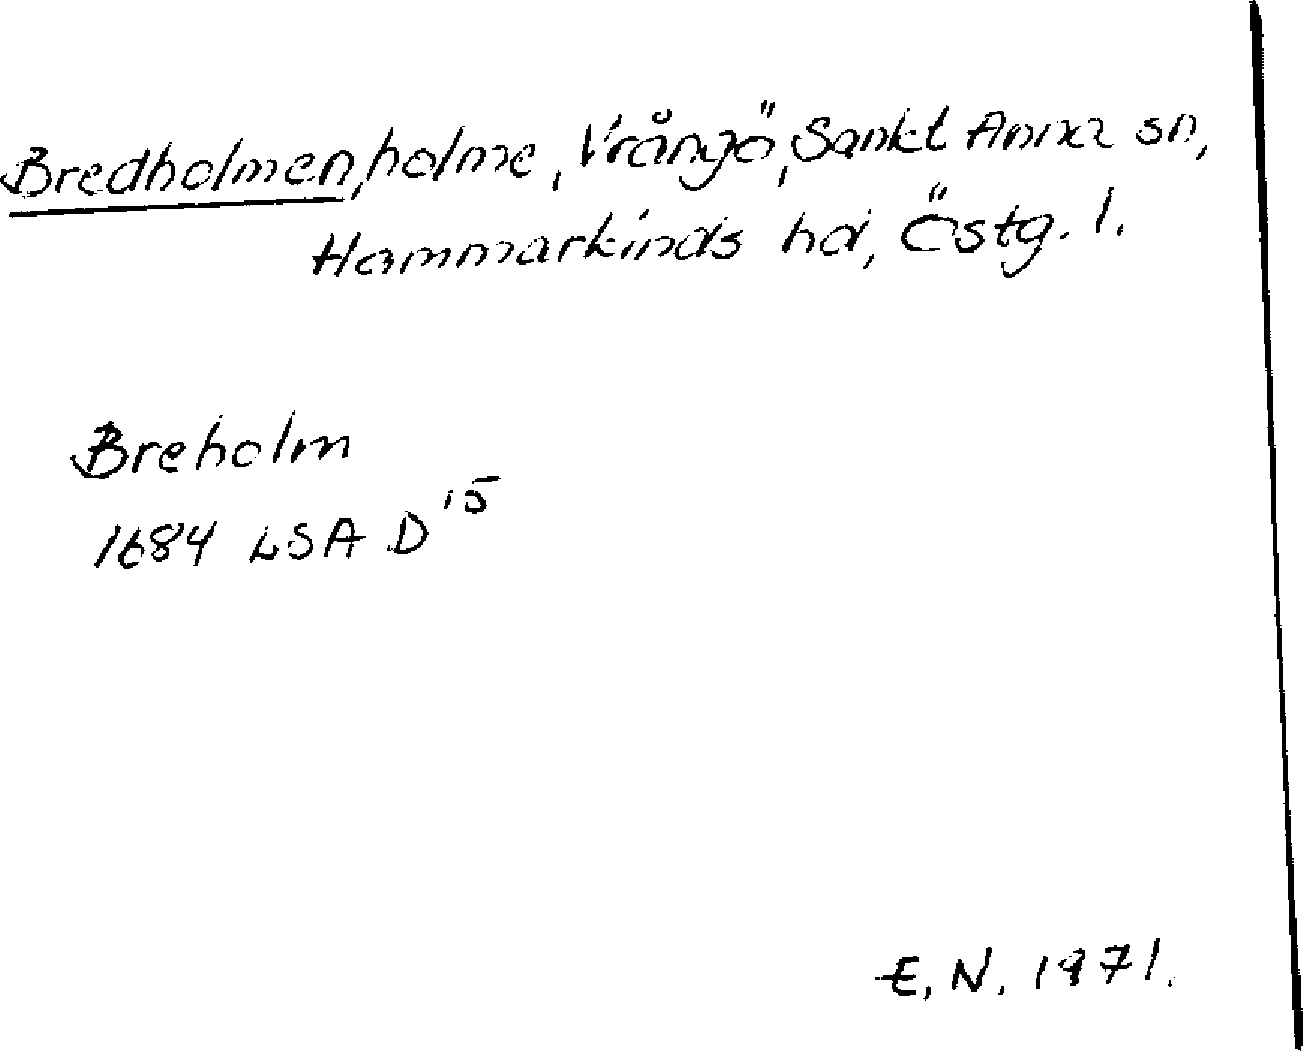 Bredholmen, holme, Vrångö, Sankt Anna sn,
Hammarkinds hd, Östg. l.
Breholm
1684 LSA D 15
E. N. 1971.